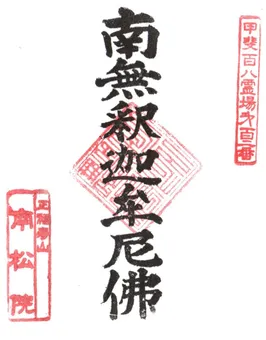 甲斐百八霊場第百番
南無釈迦牟尼佛
南松院